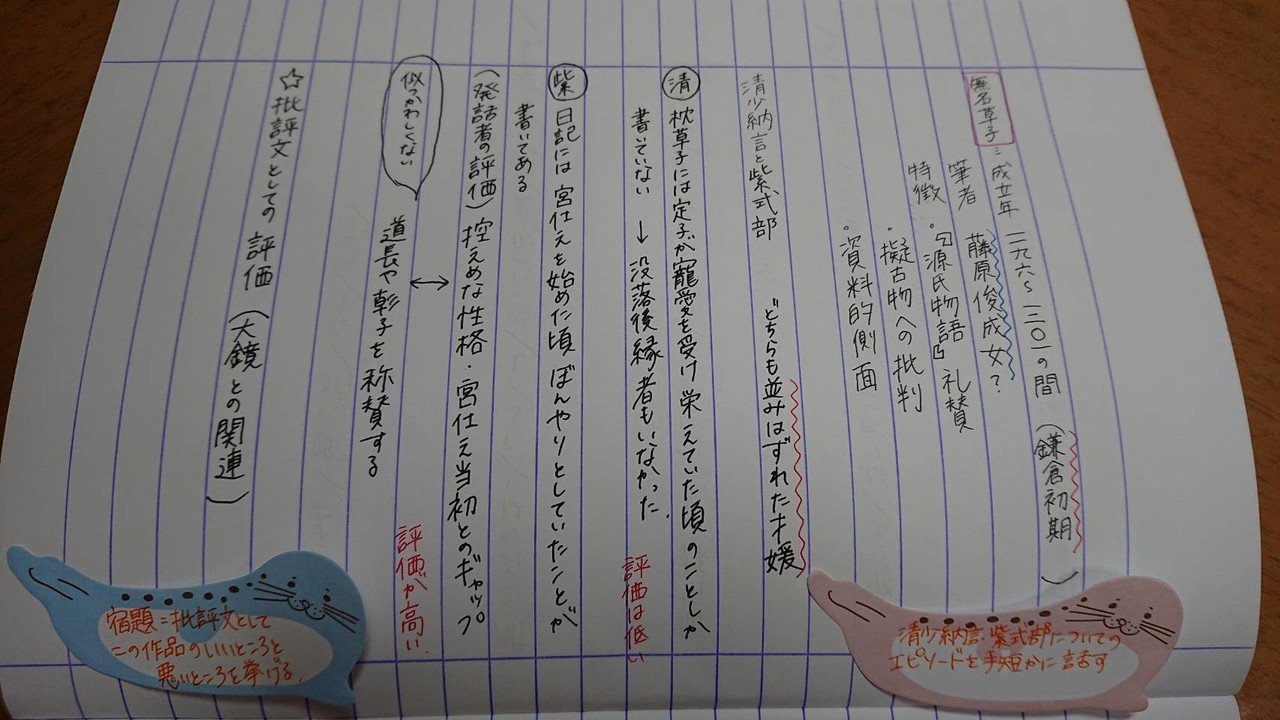 無名草子：成立年 一一九六～一二〇一の間（鎌倉初期）
筆者 藤原俊成女？
特徴・『源氏物語』礼賛
・擬古物への批判
・資料的側面
清少納言と紫式部 どちらも並みはずれた才媛
清 枕草子には定子が寵愛を受け栄えていた頃のことしか
書いていない → 没落後縁者もいなかった 評価は低い
紫 日記には宮仕えを始めた頃ぼんやりとしていたことが
書いてある
（発話者の評価）控えめな性格・宮仕え当初とのギャップ
↔
似つかわしくない
道長や彰子を称賛する 評価が高い
☆批評文としての評価（大鏡との関連）
清少納言・紫式部についての
エピソードを手短かに話す
宿題：批評文として
この作品のいいところと
悪いところを挙げる